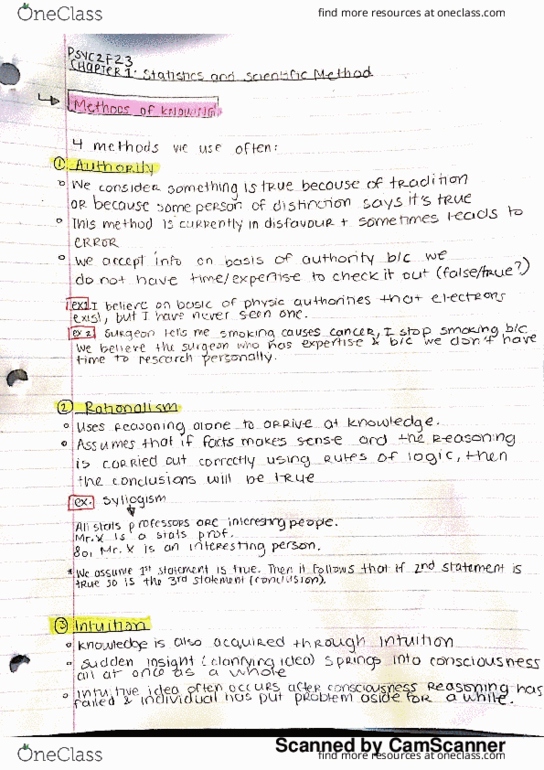 OneClass
find more resources at oneclass.com
PSYC2F23
CHAPTER 1: Statistics and Scientific Method
Methods of Knowing
4 methods we use often:
① Authority
We consider something is true because of tradition
or because some person of distinction says it's true
This method is currently in disfavour + sometimes leads to
error
We accept info on basis of authority b/c we
do not have time/expertise to check it out (false/true?)
ex 1 I believe on basic of physic authorities that electrons
exist, but I have never seen one.
ex 2. Surgeon tells me smoking causes cancer, I stop smoking b/c
we believe the surgeon who has expertise & b/c we don't have
time to research personally.
② Rationalism
Uses reasoning alone to arrive at knowledge.
Assumes that if facts makes sense and the reasoning
is carried out correctly using rules of logic, then
the conclusions will be true
ex. Syllogism
All stats professors are interesting people.
Mr. X is a stats prof.
So, Mr. X is an interesting person.
* We assume 1st statement is true. Then it follows that if 2nd statement is
true so is the 3rd statement (conclusion).
③ Intuition
Knowledge is also acquired through intuition
Sudden insight (clarifying idea) springs into consciousness
all at once as a whole
Intuitive idea often occurs after consciousness reasoning has
failed & individual has put problem aside for a while.
Scanned by CamScanner
OneClass
find more resources at oneclass.com